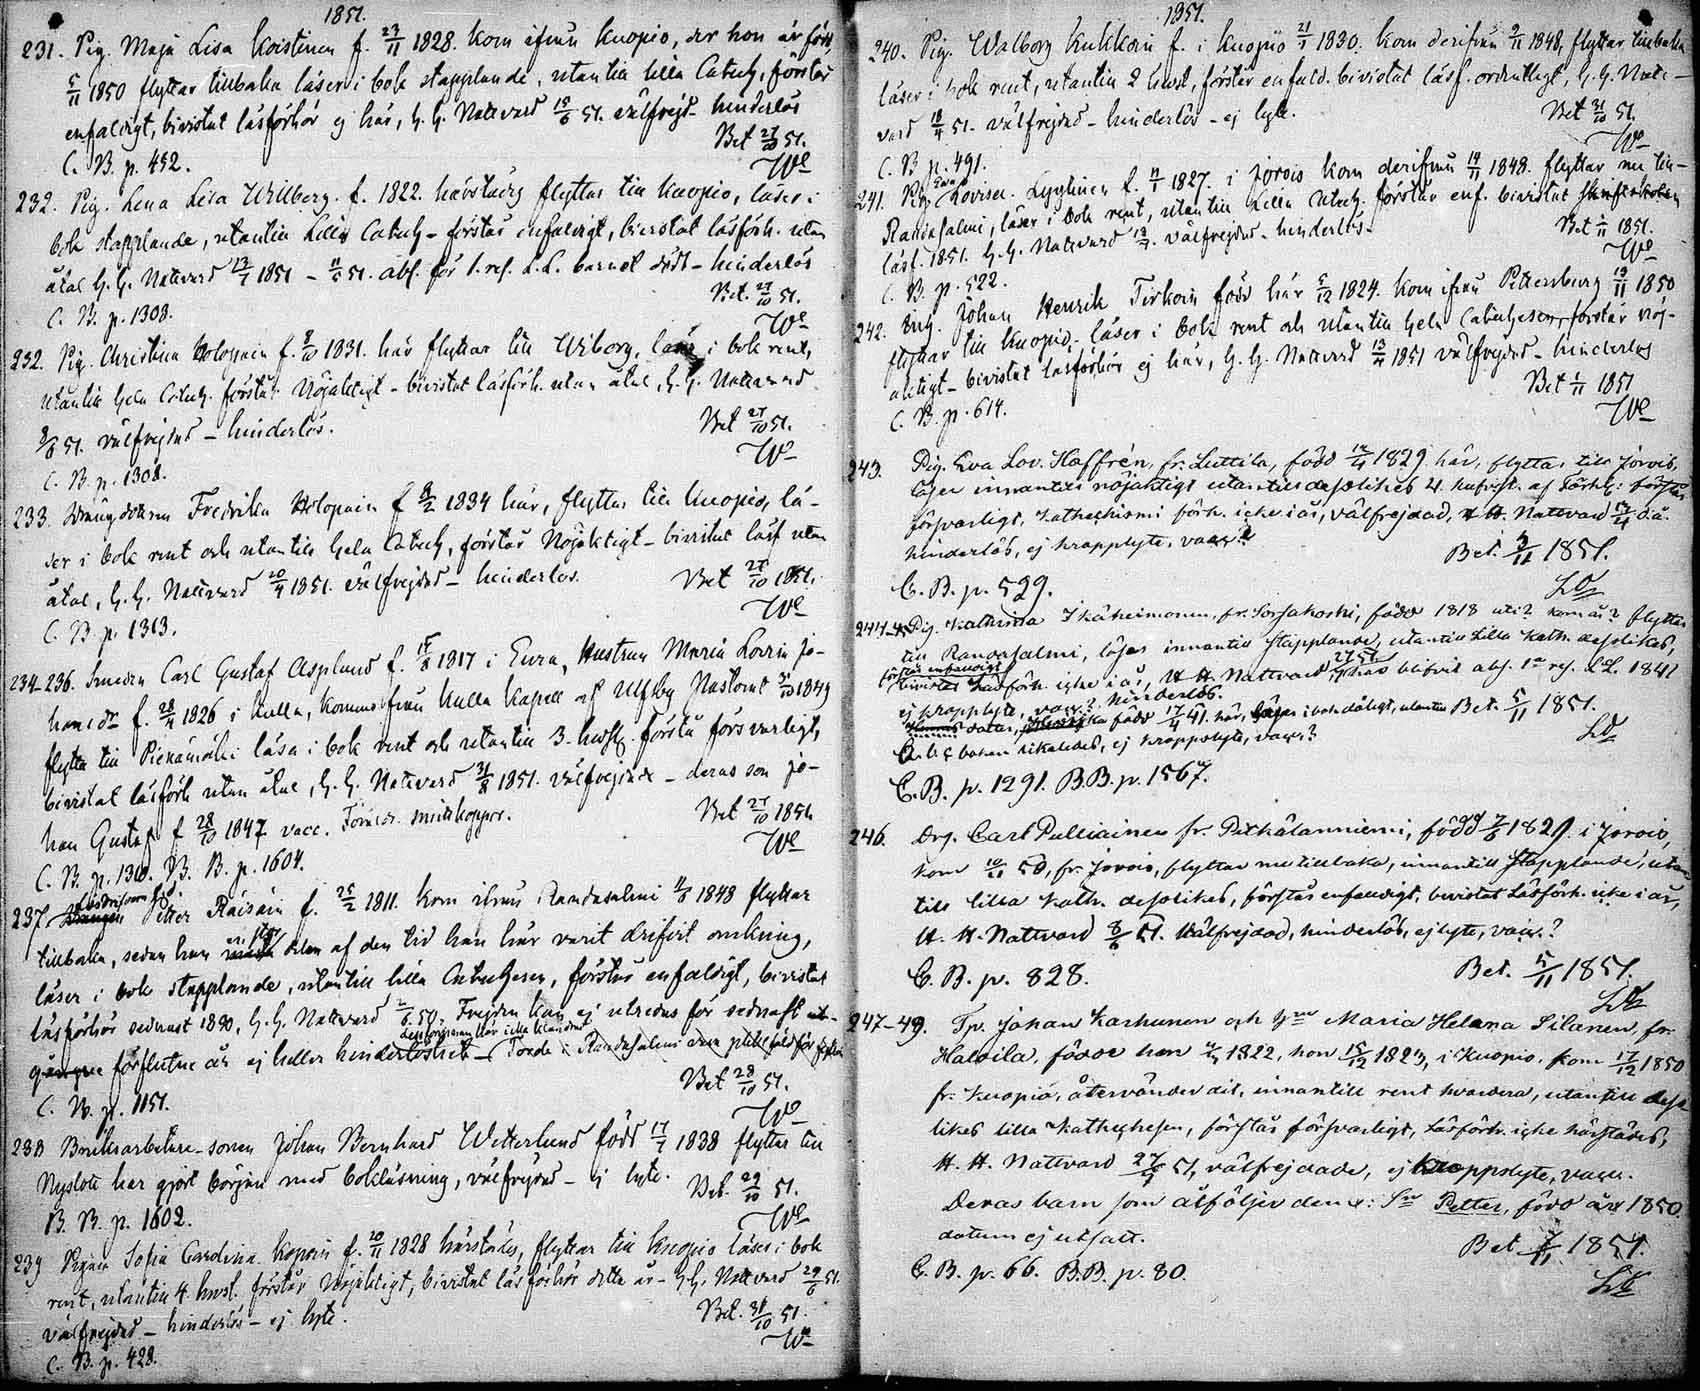 1851.
231. Pig. Maja Lisa Koistinen f. 27/11 1828. kom ifrån Kuopio, der hon är född,
5/11 1850 flyttar tillbaka läser i bok stapplande, utantill lilla Catech. förstår
enfaldigt, bivistat läsförhör ej här, H. H. Nattvard 15/6 51. välfrejd- hinderlös
Bet 27/10 51.
C. B. p. 452.
We
232. Pig. Lena Lisa Willberg. f. 1822. härstädes flyttar till Kuopio, läser i
bok stapplande, utantill Lilla Catech- förstår enfaldigt, bivistat läsförh. utan
åtal H. H. Nattvard 13/7 1851 - 11/5 51. abs. för 1. res. L. L. barnet dödt - hinderlös
Bet. 27/10 51.
C. B. p. 1308.
We
232. Pig. Christina Holopain f. 8/10 1831. här flyttar till Wiborg, läser i bok rent,
utantill hela Catech. förstår Nöjaktigt - bivistat läsförh. utan åtal, H. H. Nattvard
8/6 51. välfrejdad - hinderlös.
Bet 27/10 51.
We
C. B. p. 1308.
233. Drängdottren Fredrika Holopain f 8/2 1834 här, flyttar till Kuopio, lä-
ser i bok rent och utantill hela Catech, förstår Nöjaktigt - bivistat läsf utan
åtal, H. H. Nattvard 20/4 1851. välfrejdad - hinderlös.
Bet 27/10 1851.
We
C. B. p. 1313.
234-236. Smeden Carl Gustaf Asplund f. 15/8 1817 i Eura, Hustrun Maria Lovin Jo-
hans dr f. 28/4 1826 i Kulla, komne från Kulla Kapell af Ulfsby Pastorat 31/10 1849
flytta till Pieksämäki läsa i bok rent och utantill 3. hufst. förstå försvarligt,
bivistat läsförh utan åtal, H. H. Nattvard 31/8 1851. välfrejdade - deras son Jo-
han Gustaf f 28/10 1847 vacc.
Bet 27/10 1851.
We
C. B. p. 1310. B. B. p. 1604.
237. Petter Räisäin f. 25/2 1811. kom ifrån Randasalmi 1848 flyttar
tillbaka, sedan han af den tid han här varit drifvit omkring,
läser i bok stapplande, utantill lilla Catechesen, förstår enfaldigt, bivistat
läsförhör sednast 1850, H. H. Nattvard 2/6 50. Frejden kan ej utredas för sednast
förflutne år ej heller hinderlöshet -
Bet 28/10 51.
We
C. B. p. 1151.
238 Bruksarbetare-sonen Johan Bernhard Wetterlund född 17/7 1838 flyttar till
Nyslott har gjort början med bokläsning, välfrejdad - ej lyte.
Bet. 29/10 51.
We
B. B. p. 1602.
239 Pigan Sofia Carolina Kopoin f. 20/11 1828 härstädes, flyttar till Kuopio läser i bok
rent, utantill 4 huvst. förstår Nöjaktigt, bivistat läsförhör detta år - H. H. Nattvard 29/6 51.
välfrejdad - hinderlös - ej lyte.
Bet. 31/10 51.
We
C. B. p. 428.
1851.
240. Pig. Walborg Kukkoin f. i Kuopio 21/1 1830. kom derifrån 9/11 1848, flyttar tillbaka
läser i bok rent, utantill 2 huvst, förstår enfald. bivistat läsf. ordentligt, H. H. Natt-
vard 18/4 51. välfrejdad - hinderlös - ej lyte.
Bet 31/10 51.
We
C. B p. 491.
241. Pig Eva Lovisa. Lyytinen f. 11/1 1827. i Jorois kom derifrån 14/11 1848. flyttar nu till
Randasalmi, läser i bok rent, utantill Lilla Catech. förstår enf. bivistat
läsf. 1851. H. H. Nattvard 13/7. välfrejdad - hinderlös.
Bet 1/11 1851.
We
C. B. p. 522.
242. Drg. Johan Henrik Tirkoin född här 5/12 1824. kom ifrån Pettersburg 19/11 1850
flyttar till Kuopio, läser i bok rent och utantill hela Catechesen, förstår nöj-
aktigt - bivistat läsförhör ej här, H. H. Nattvard 13/4 1851 välfrejdad - hinderlös
Bet 1/11 1851
We
C. B. p. 614.
243. Pig. Eva Lov. Haffrén, fr. Luttila, född 14/4 1829 här, flyttar till Jorois,
läser innantill nöjaktigt utantill desslikes 4 hufvst. af Förkl: förstår
försvarligt, Kathechismi förh. icke i år, välfrejdad, H. H. Nattvard d. å.
hinderlös, ej kroppslyte, vacc.?
Bet. 3/11 1851.
C. B. p. 529.
244-45 Pig. Kathrina Ikäheimonen, fr. Sorsakoski, född 1818 uti? kom år? flyttar
till Randasalmi, läser innantill stapplande, utantill Lilla Kath. desslikes,
förstår enfaldigt
bivistat Läsförh. icke i år, H. H. Nattvard 27/7 51, har blifvit abs. 1a res. LL. 1841
ej kroppslyte, vacc.? hinderlös.
dotter, född 17/4 41. här, läser i bok dåligt, utantill
Bet. 5/11 1851.
A. b. c boken likaledes, ej kroppslyte, vacc.?
C. B. p. 1291. B.B. p. 1567.
246. Drg. Carl Pulliainen fr. Pitkälanniemi, född 7/6 1829. i Jorois,
kom 10/11 50, fr. Jorois, flyttar nu tillbaka, innantill stapplande, utan-
till lilla Kath. desslikes, förstår enfaldigt, bivistat Läsförh. icke i år,
H. H. Nattvard 8/6 51. Välfrejdad, hinderlös, ej lyte, vacc.?
Bet. 5/11 1851.
C. B. p. 828.
247-49. Tp. Johan Karhunen och Hn Maria Helena Silanen, fr.
Halvila, födde han 4/9 1822, hon 15/12 1823, i Kuopio. kom 17/12 1850
fr. Kuopio, återvänder dit, innantill rent hvardera, utantill dess-
likes lilla Kathechesen, förstår försvarligt, Läsförh. icke härstädes,
H. H. Nattvard 27/7 51, välfrejdade, ej kroppslyte, vacc.
Deras barn som åtföljer dem: Sn Petter, född år 1850.
datum ej utsatt.
Bet 7/11 1851.
C. B. p. 66. B.B. p. 80.